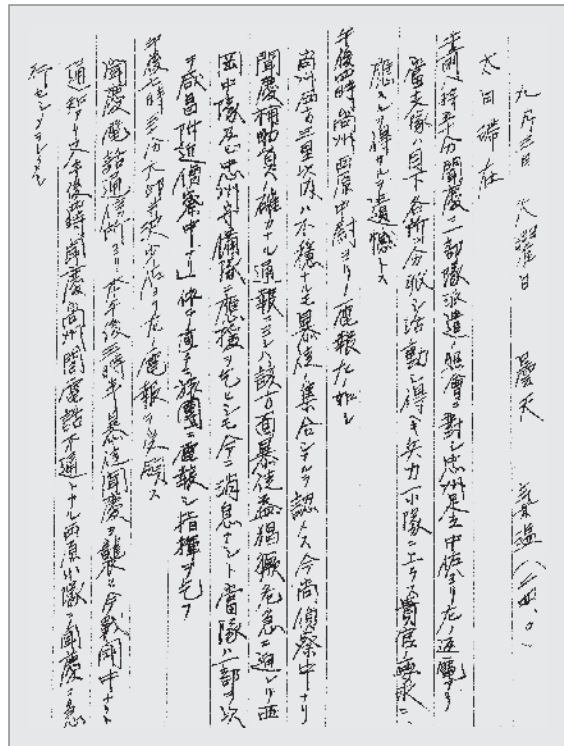 九月三日 火曜日 曇天 氣温八二、〇
大田滞在
午前八時半分聞慶ニ一部隊派遣ノ照會ニ對シ忠州足立中佐ヨリ左ノ返電アリ
當支隊ハ目下各所ニ分派シ活動シ得ヘキ兵力一小隊ニ止ラス貴官ノ要求ニ
應スルヲ得サルヲ遺憾トス
午後四時尚州西原中尉ヨリノ電報左ノ如シ
尚州西方三里以内ハ不穏ナルモ暴徒ノ集合シアルヲ認メス今尚偵察中ナリ
聞慶補助員ノ確カナル通報ニヨレハ該方面暴徒益猖獗危急ニ迫レリ西
岡中隊及忠州守備隊ニ應援ヲ乞ヒシモ今ニ消息ナシト當隊ハ一部ヲ以
テ咸昌附近偵察中ナリ」仍テ直チニ旅團ニ電報シ指揮ヲ乞フ
午後七時三分大邱 少佐ヨリ左ノ電報ヲ受領ス
聞慶電話通信所ヨリ左午後三時半暴徒聞慶ヲ襲ヒ今戰闘中ナリト
通知アリ又午後四時聞慶尚州間電話不通トナル西原小隊ヲ聞慶ニ急
行セシメラレタシ